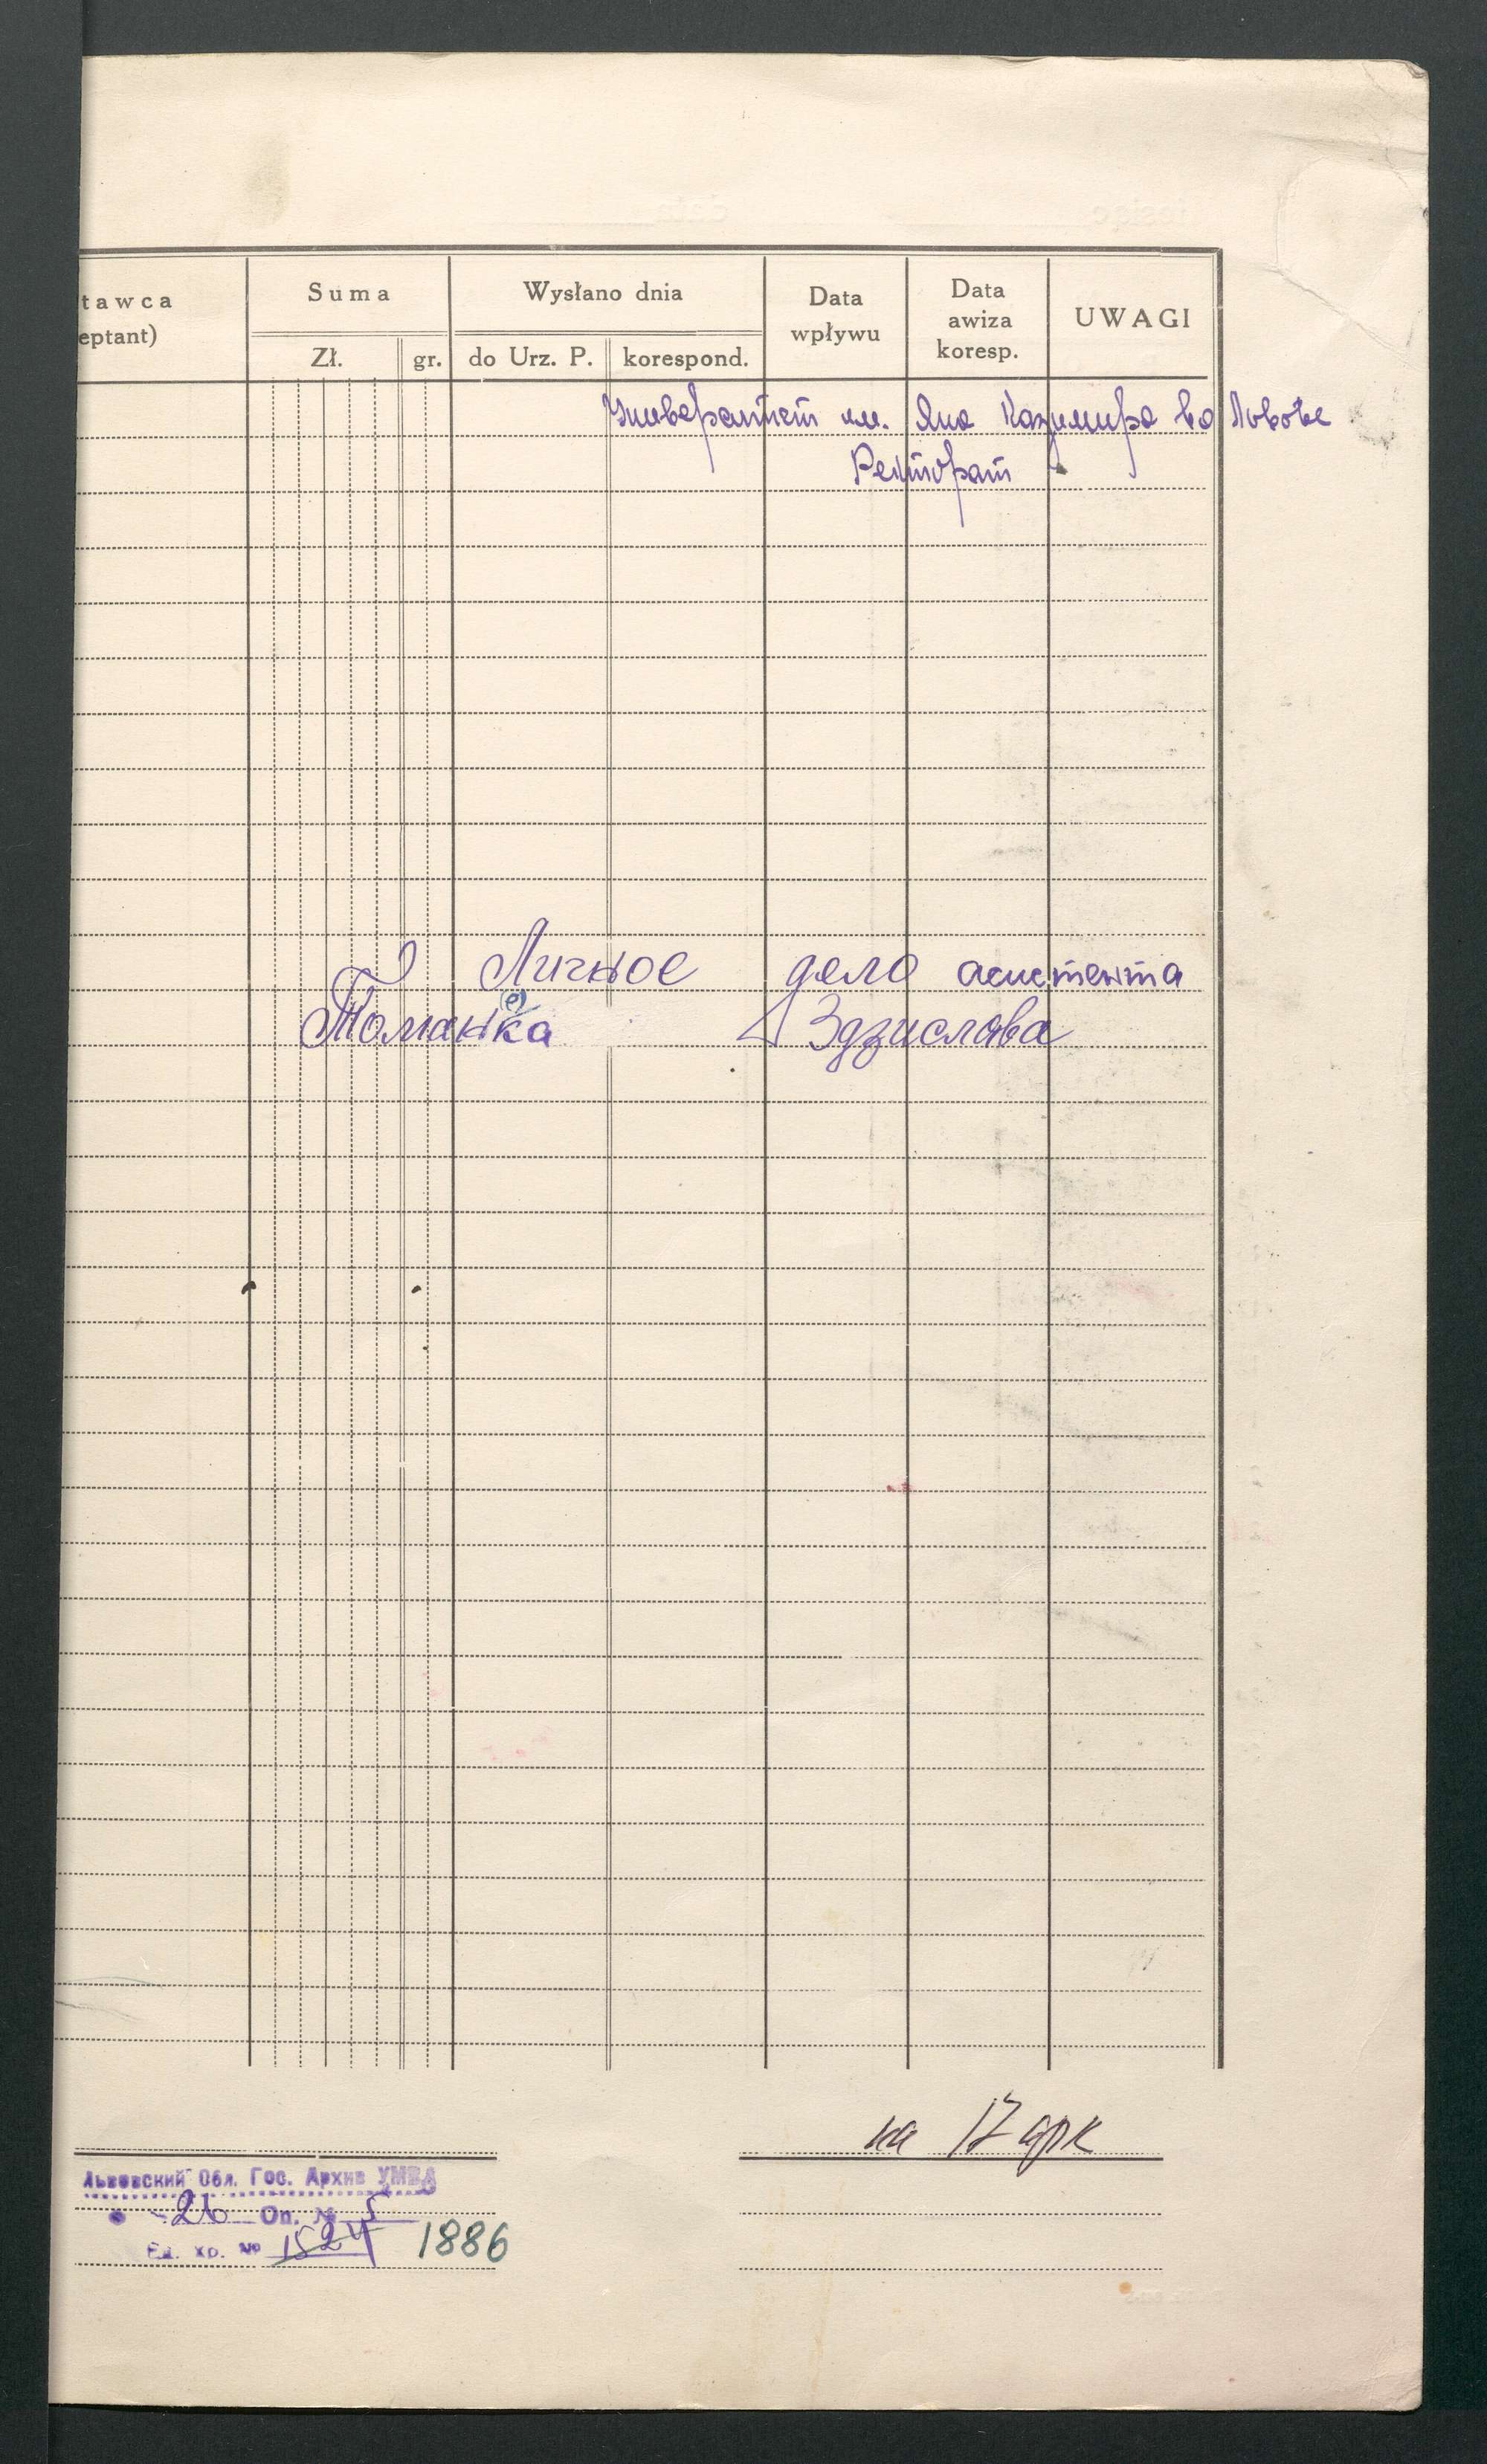 tawca
eptant)
Suma
Zł.
gr.
Wysłano dnia
do Urz. P.
korespond.
Data
wpływu
Data
awiza
koresp.
UWAGI
Университет им. Яна Казимира во Львове
Ректорат
Личное дело асистента
Томанка Здзислава
на 17 арк
Львовский Обл. Гос. Архив УМВД
26 Оп. № 5
Ед. хр. № 1524 1886